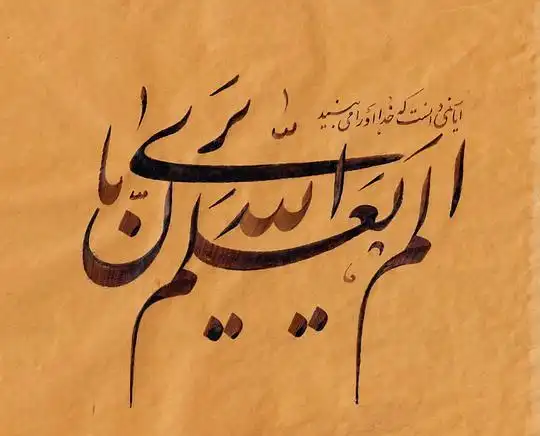 آیا نمی دانست که خدا او را می بیند
الم یعلم بان الله یری